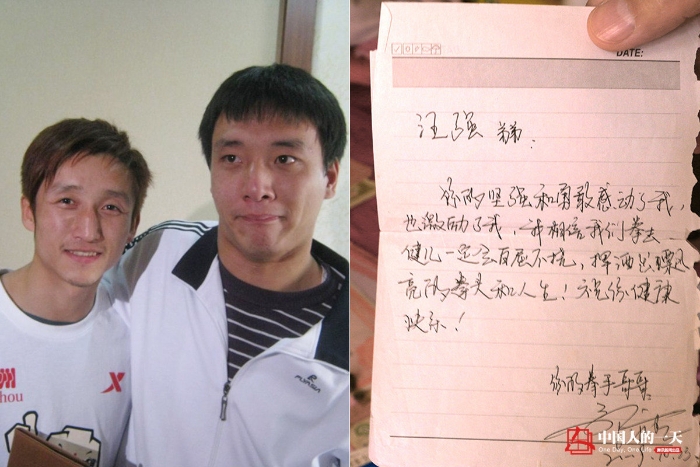 州
hou
DATE:
汪强 弟弟：
你的坚强和勇敢感动了我，
也激励了我，我相信我们拳击
健儿一定会百屈不挠，挥洒出漂
亮的拳头和人生！祝你健康
快乐！
你的拳手哥哥
中国人的一天
One Day, One Life